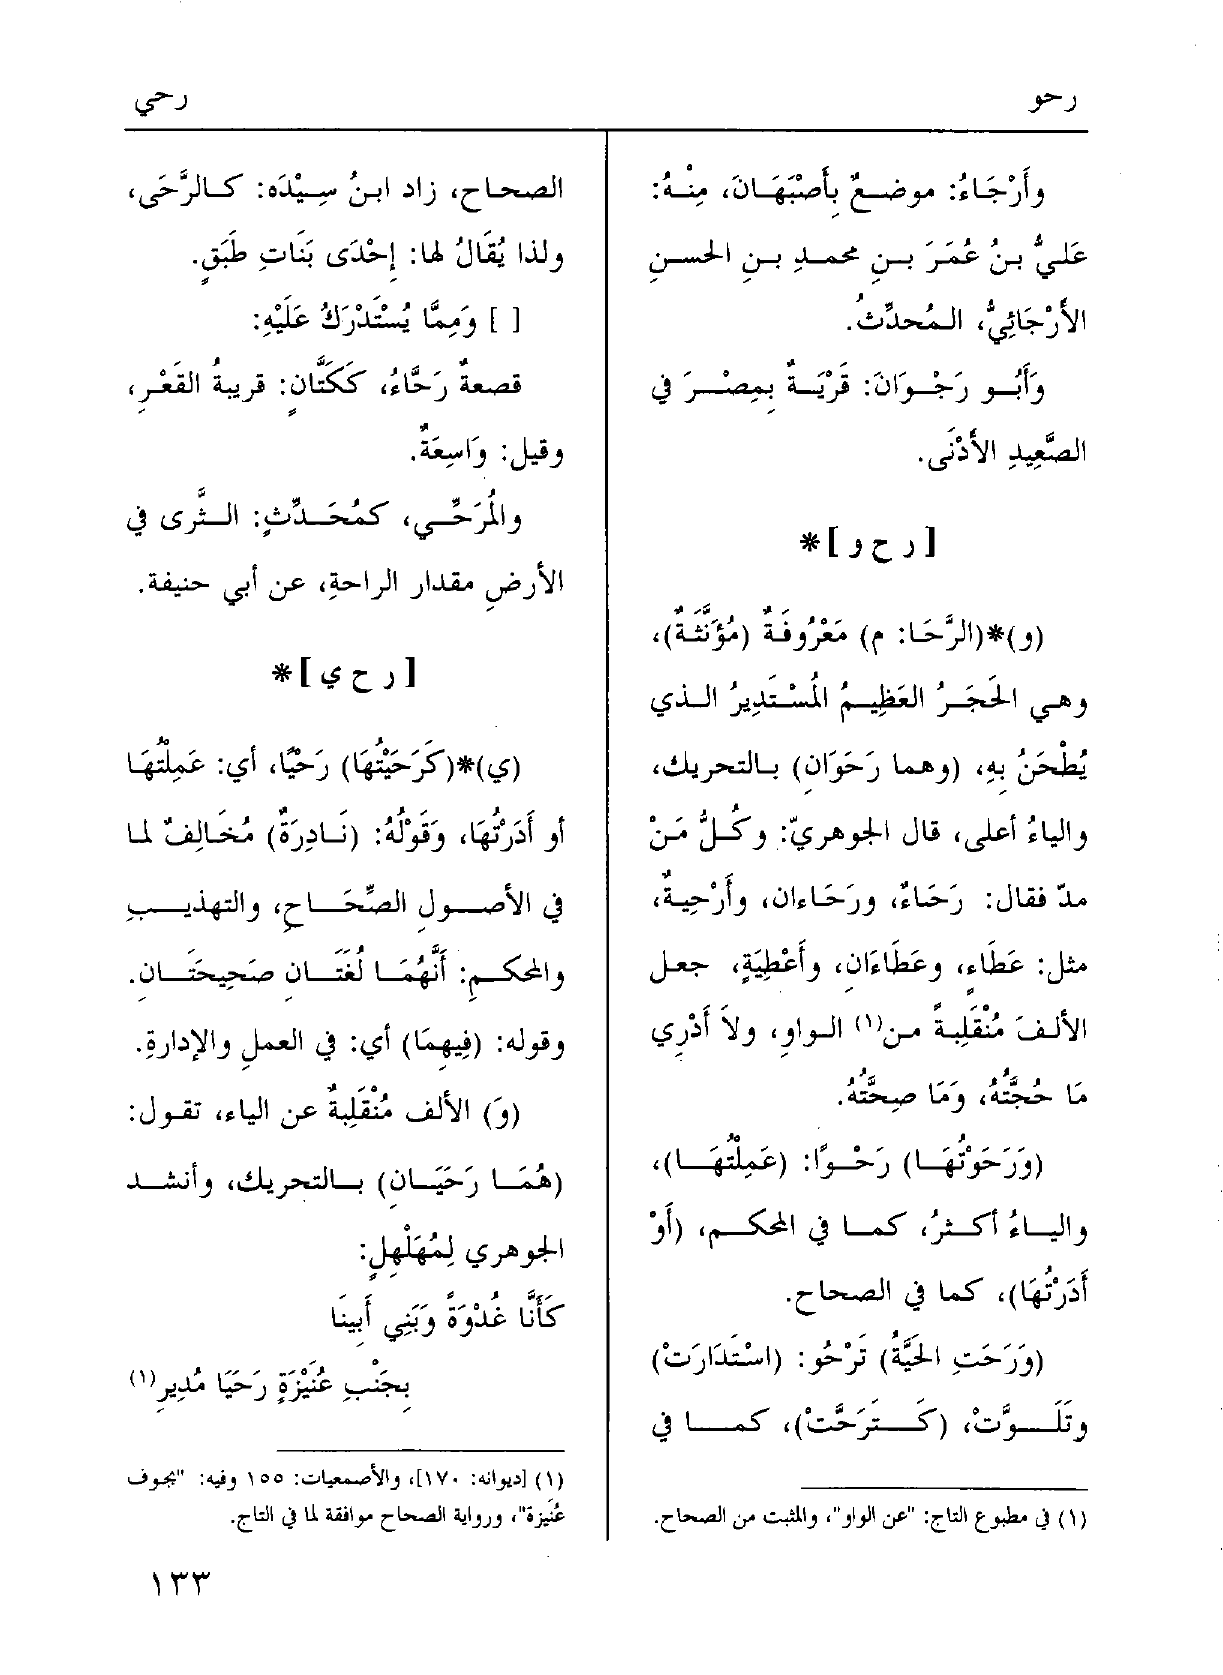 رحو
رحي
وَأَرْجَاءُ: موضعٌ بِأَصْبَهَانَ، مِنْهُ:
عَليُّ بنُ عُمَرَ بنِ محمدِ بنِ الحسنِ
الأَرْجَائِيُّ، المُحدِّثُ.
وَأَبُو رَجْوَانَ: قَرْيَةٌ بِمِصْرَ في
الصَّعِيدِ الأَدْنَى.
[ ر ح و ]*
(و)*(الرَّحَا: م) مَعْرُوفَةٌ (مُؤَنَّثَةٌ)،
وهي الحَجَرُ العَظِيمُ المُسْتَدِيرُ الذي
يُطْحَنُ بِهِ، (وهما رَحَوَانِ) بالتحريك،
والياءُ أعلى، قال الجوهريّ: وكُلُّ مَنْ
مدّ فقال: رَحَاءٌ، ورَحَاءان، وأَرْحِيةٌ،
مثل: عَطَاءٍ، وعَطَاءَانِ، وأَعْطِيَةٍ، جعل
الألفَ مُنْقَلِبةً من(١) الواوِ، ولاَ أَدْرِي
مَا حُجَّتُهُ، وَمَا صِحَّتُهُ.
(وَرَحَوْتُهَا) رَحْوًا: (عَمِلْتُهَا)،
والياءُ أكثرُ، كما في المحكمِ، (أَوْ
أَدَرْتُهَا)، كما في الصحاح.
(وَرَحَتِ الحَيَّةُ) تَرْحُو: (اسْتَدَارَتْ)
وتَلَوَّتْ، (كَتَرَحَّتْ)، كما في
(١) في مطبوع التاج: "عن الواو"، والمثبت من الصحاح.
الصحاحِ، زاد ابنُ سِيْدَه: كالرَّحَى،
ولذا يُقَالُ لها: إِحْدَى بَنَاتِ طَبَقٍ.
[ ] وَمِمَّا يُسْتَدْرَكُ عَلَيْهِ:
قصعةٌ رَحَّاءُ، كَكَتَّانٍ: قريبةُ القَعْرِ،
وقيل: وَاسِعَةٌ.
والمُرَحِّي، كمُحَدِّثٍ: الثَّرى في
الأرضِ مقدار الراحةِ، عن أبي حنيفة.
[ ر ح ي ]*
(ي)*(كَرَحَيْتُهَا) رَحْيًا، أي: عَمِلْتُهَا
أو أَدَرْتُهَا، وَقَوْلُهُ: (نَادِرَةٌ) مُخَالِفٌ لما
في الأصولِ الصِّحَاحِ، والتهذيبِ
والمحكمِ: أَنَّهُمَا لُغَتَانِ صَحِيحَتَانِ.
وقوله: (فِيهِمَا) أي: في العملِ والإدارةِ.
(وَ) الألف مُنْقَلِبةٌ عن الياء، تقول:
(هُمَا رَحَيَانِ) بالتحريك، وأنشد
الجوهري لِمُهَلْهِلٍ:
كَأَنَّا غُدْوَةً وَبَنِي أَبِينَا
بِجَنْبِ عُنَيْزَةٍ رَحَيَا مُدِيرِ(١)
(١) [ديوانه: ١٧٠]، والأصمعيات: ١٥٥ وفيه: "بجوف
عُنَيزة"، ورواية الصحاح موافقة لما في التاج.
١٣٣